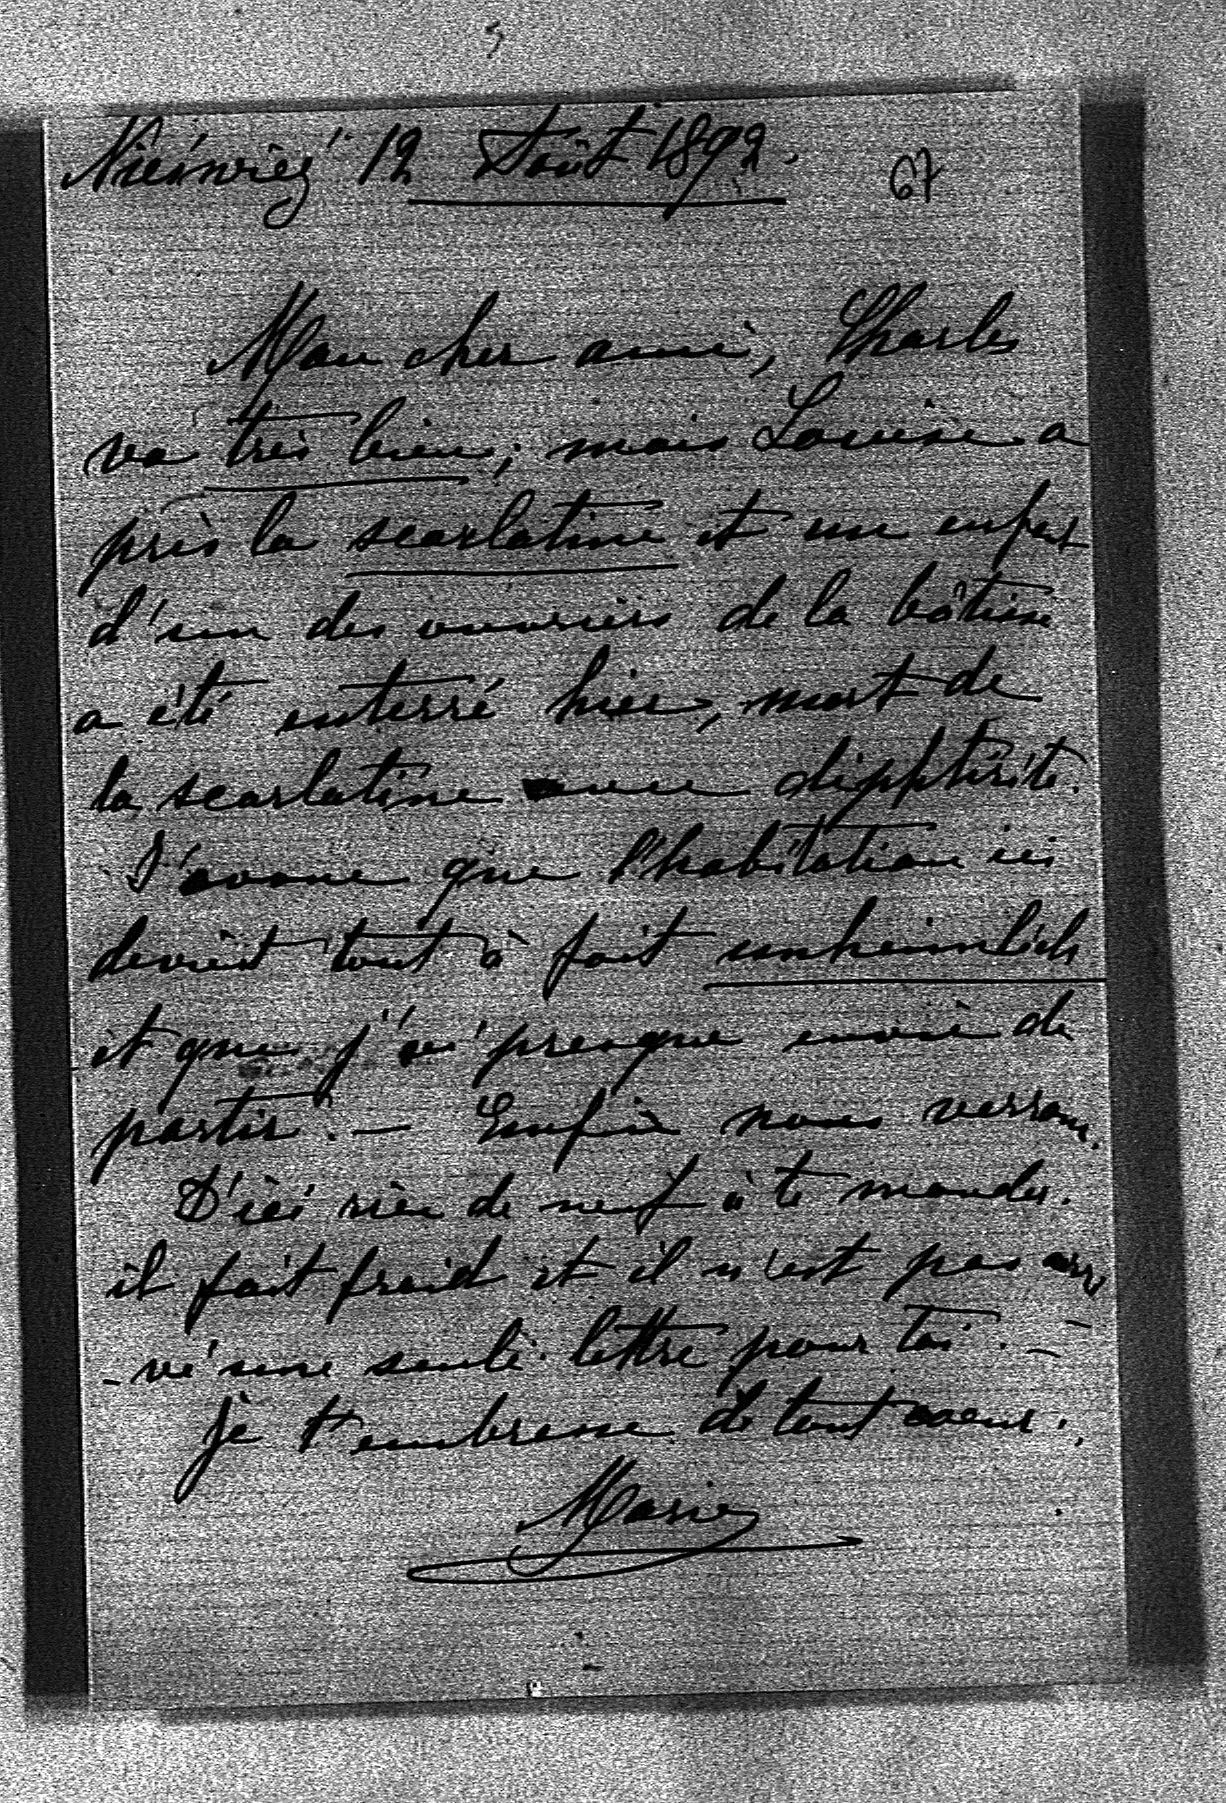 Nieświeź 12 Août 1892.
67
Mon cher ami, Charles
va très bien; mais Louise a
pris la scarlatine et un enfant
d'un des ouvriers de la bâtisse
a été enterré hier, mort de
la scarlatine avec dipptérite.
J'avoue que l'habitation ici
devient tout à fait unheimlich
et que j'ai presque envie de
partir. — Enfin nous verrons.
D'ici rien de neuf à te mander.
il fait froid et il n'est pas arri
- vé une seule lettre pour toi. —
Je t'embrasse de tout coeur.
Marie